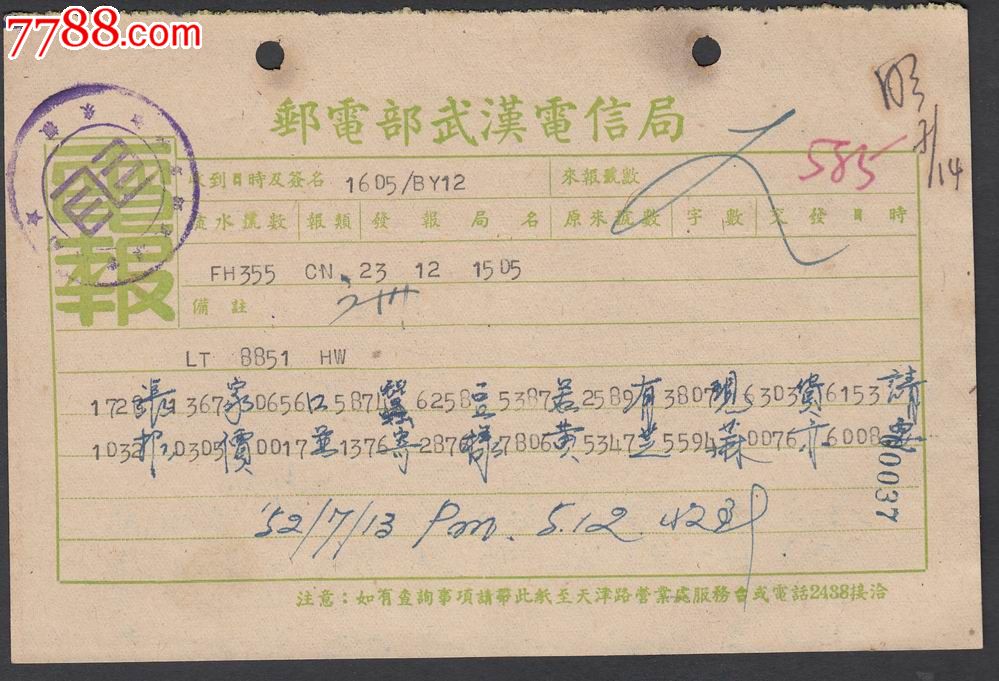 7788.com
郵電部武漢電信局
明
7/14
585
電報
收到日時及簽名 1605/BY12 來報號數
流水號數 報類 發報局名 原來號數 字數 交發日時
FH355 CN 23 12 1505
備註
LT 8851 HW
1728張1367家0656口5871蠶6258豆5387若2589有3807現6303貨6153請
1032報0303價0017並1376寄2876樣7806黃5347芝5594蔴0076亦6008要
00037
'52/7/13 Pm. 5.12
注意：如有查詢事項請帶此紙至天津路營業處服務台或電話2438接洽